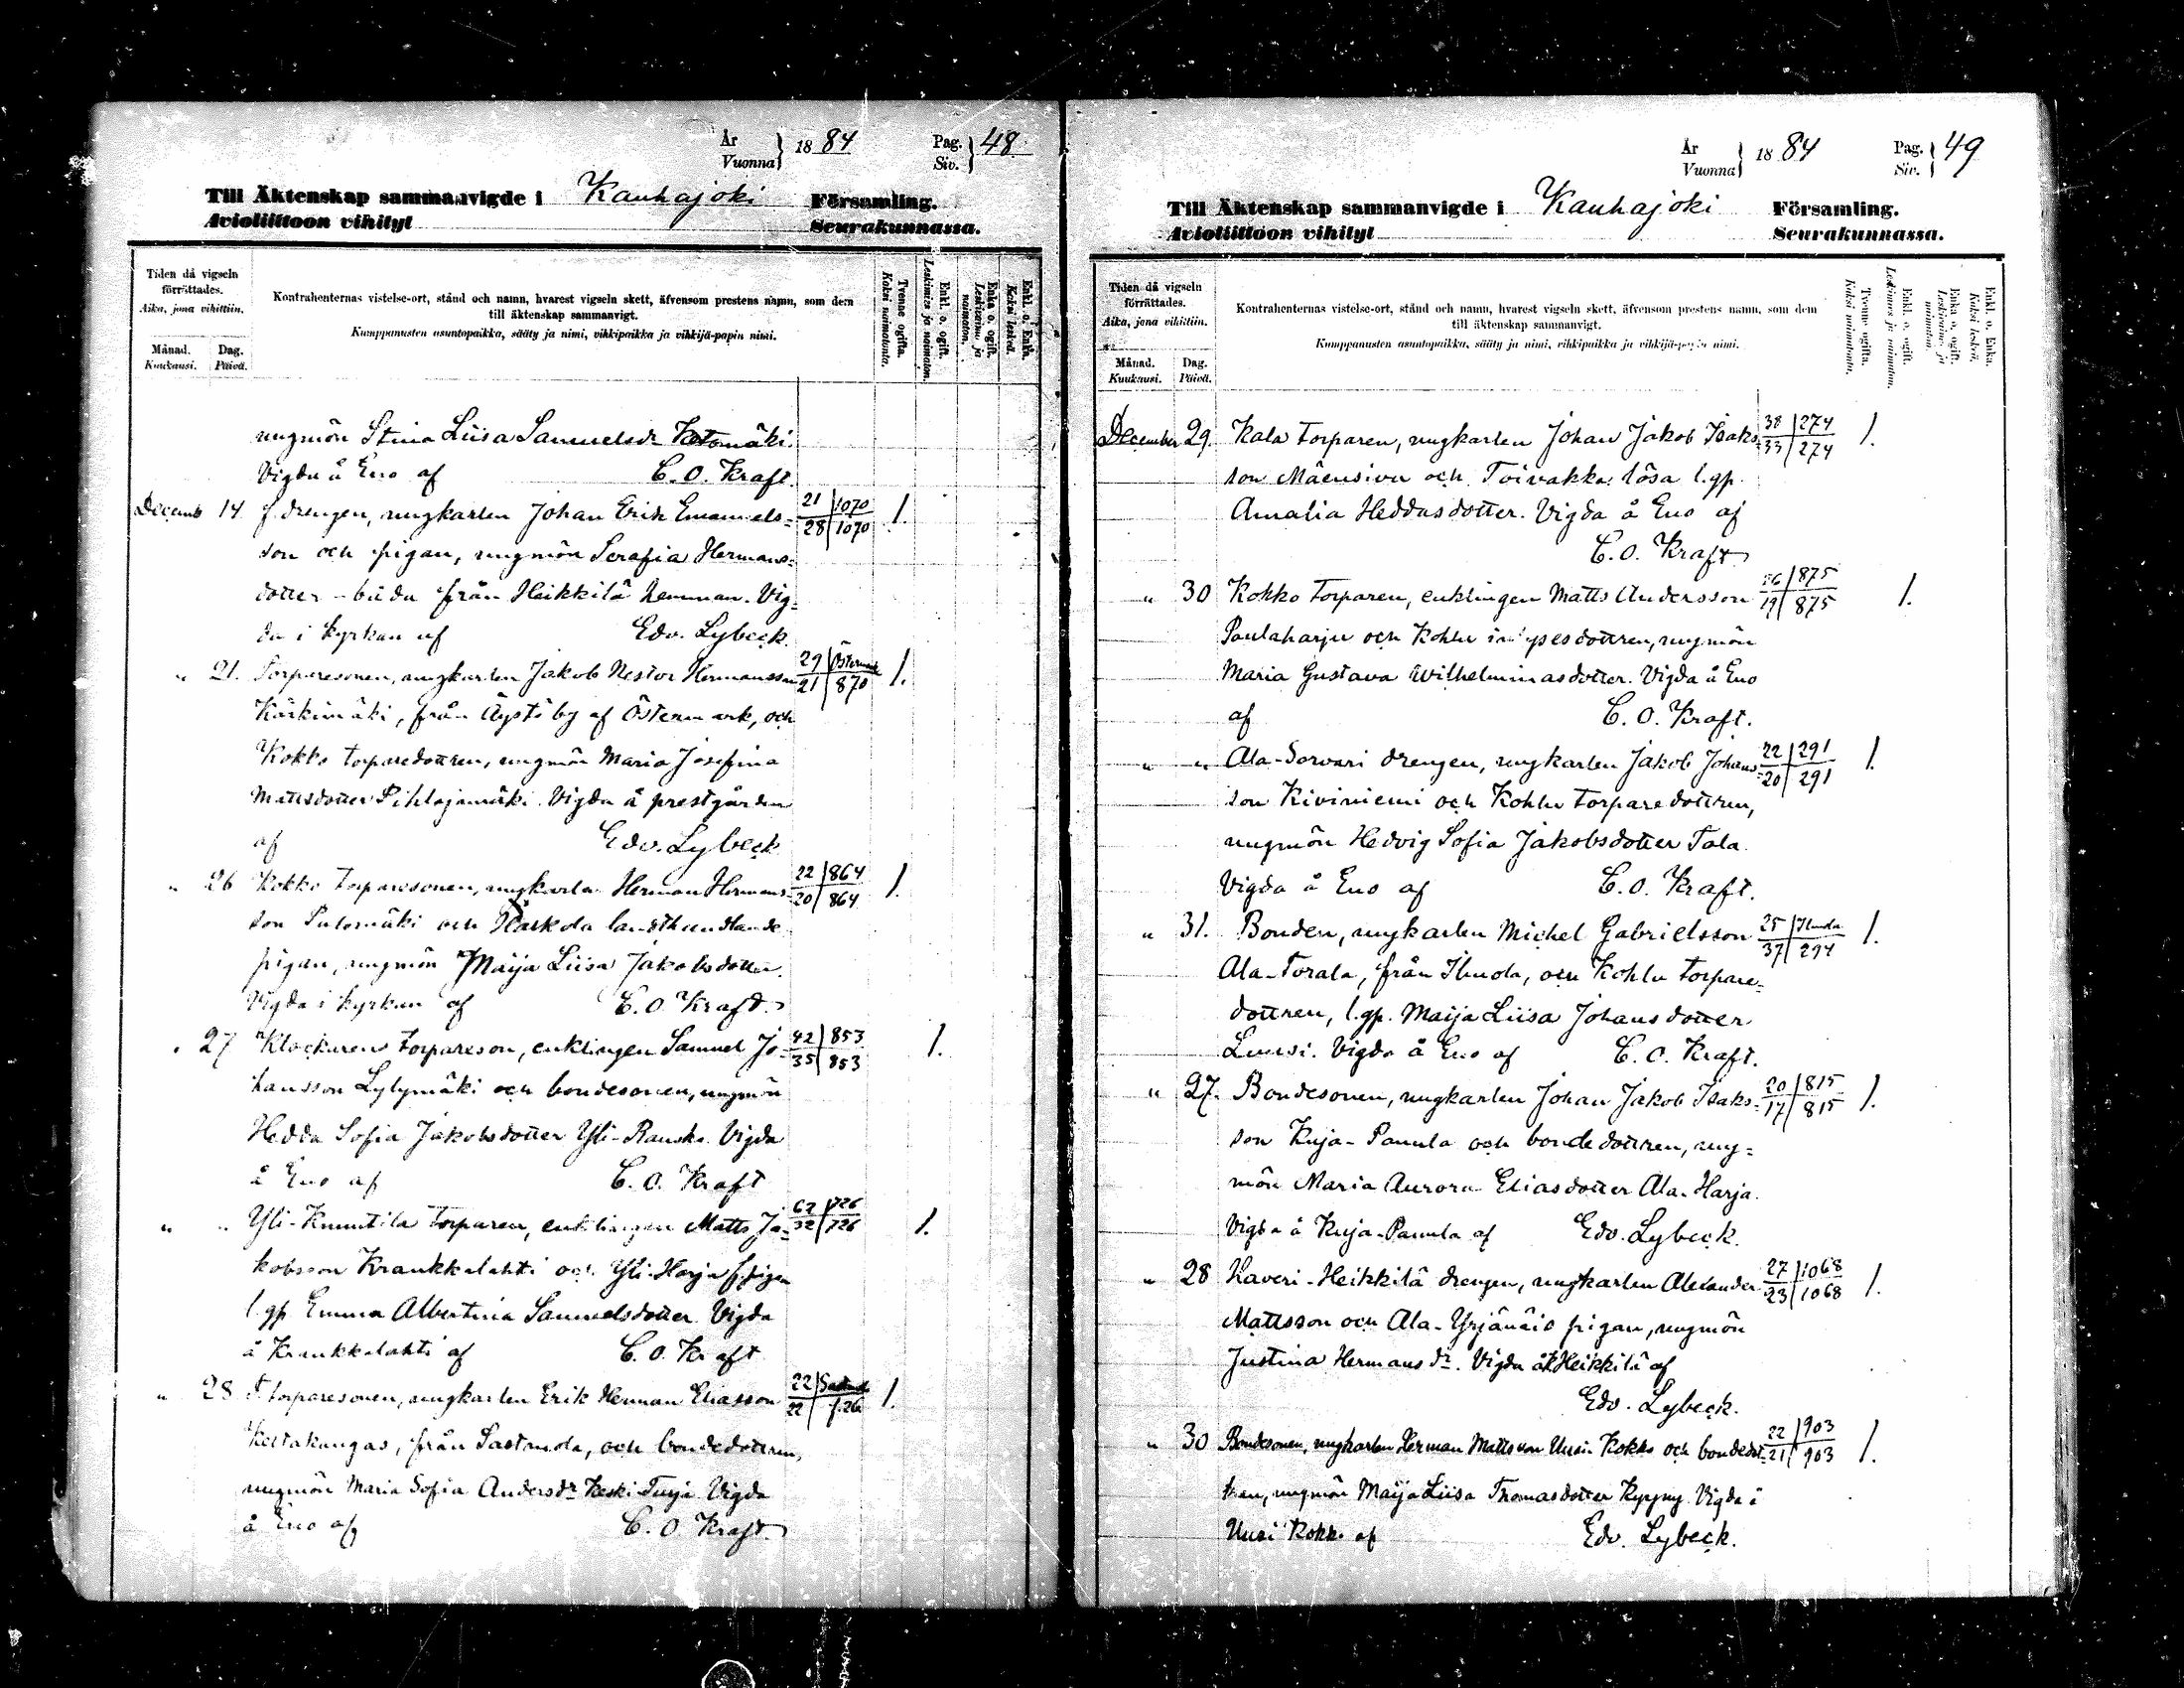 År
Vuonna } 1884 Pag.
Siv. } 48
Till Äktenskap sammanvigde i Kauhajoki Församling.
Avioliittoon vihityt Seurakunnassa.
Tiden då vigseln
förrättades.
Aika, jona vihittiin.
Månad. Dag.
Kuukausi. Päivä.
Kontrahenternas vistelse-ort, stånd och namn, hvarest vigseln skett, äfvensom prestens namn, som dem
till äktenskap sammanvigt.
Kumppanusten asuntopaikka, sääty ja nimi, vihkipaikka ja vihkijä-papin nimi.
Tvenne ogifta.
Kaksi naimatonta.
Enkl. o. ogift.
Leskimies ja naimaton.
Enka o. ogift.
Leskivaimo ja
naimaton.
Enkl. o. Enka.
Kaksi leskeä.
ungmön Stina Liisa Samuelsdr
Vigda å Eno af C. O. Kraft.
Decemb 14. f. drengen, ungkarlen Johan Erik Emanuels= 21 1070 1.
28 1070
son och pigan, ungmön Serafia Hermans=
dotter – båda från Heikkilä hemman. Vig=
da i kyrkan af Edv. Lybeck.
" 21. Torparesonen, ungkarlen Jakob Nestor Hermansson 29 Östermark 1.
21 870
Kärkimäki, från Äystö by af Östermark, och
Kokko torparedottren, ungmön Maria Josefina
Mattsdotter Pihlajamäki. Vigda å prestgården
af Edv. Lybeck
" 26 Kokko torparesonen, ungkarlen Herman Hermans= 22 864 1.
20 864
son och landthandlande
pigan, ungmön Maija Liisa Jakobsdotter.
Vigda i kyrkan af C. O. Kraft.
" 27 Klockaren torpareson, enklingen Samuel Jo= 42 853 1.
35 853
hansson Lylymäki och bondesonen, ungmön
Hedda Sofia Jakobsdotter Yli-Rauska. Vigda
å Eno af C. O. Kraft
" " Yli-Knuutila torparen, enklingen Matts Ja= 62 726 1.
32 726
kobsson Kraukkalahti och Yli-Harja f. pigan
l. qp Emma Albertina Samuelsdotter. Vigda
å Kraukkalahti af C. O. Kraft
" 28 f. torparesonen, ungkarlen Erik Herman Eliasson 22 1.
22 f. 26
Keltakangas, från Sastmola, och bondedottren,
ungmön Maria Sofia Andersdr Keski-Turja. Vigda
å Eno af C. O. Kraft.
År
Vuonna } 1884 Pag.
Siv. } 49
Till Äktenskap sammanvigde i Kauhajoki Församling.
Avioliittoon vihityt Seurakunnassa.
Tiden då vigseln
förrättades.
Aika, jona vihittiin.
Månad. Dag.
Kuukausi. Päivä.
Kontrahenternas vistelse-ort, stånd och namn, hvarest vigseln skett, äfvensom prestens namn, som dem
till äktenskap sammanvigt.
Kumppanusten asuntopaikka, sääty ja nimi, vihkipaikka ja vihkijä-papin nimi.
Tvenne ogifta.
Kaksi naimatonta.
Enkl. o. ogift.
Leskimies ja naimaton.
Enka o. ogift.
Leskivaimo ja
naimaton.
Enkl. o. Enka.
Kaksi leskeä.
December 29. Kala torparen, ungkarlen Johan Jakob Isaks= 38 274 1.
33 274
son Mäensivu och Toivakka lösa l. qp.
Amalia Heddasdotter. Vigda å Eno af
C. O. Kraft
" 30 Kokko torparen, enklingen Matts Andersson 875 1.
19 875
Paulaharju och Kohlu dottren, ungmön
Maria Gustava Wilhelminasdotter. Vigda å Eno
af C. O. Kraft.
" " Ala-Sorvari drengen, ungkarlen Jakob Johans= 22 291 1.
20 291
son Kiviniemi och Kohlu torparedottren,
ungmön Hedvig Sofia Jakobsdotter Tala.
Vigda å Eno af C. O. Kraft.
" 31. Bonden, ungkarlen Michel Gabrielsson 25 Ilmola 1.
37 294
Ala-Torala, från Ilmola, och Kohlu torpare=
dottren, l. qp. Maija Liisa Johansdotter
Luusi. Vigda å Eno af C. O. Kraft.
" 27. Bondesonen, ungkarlen Johan Jakob Isaks= 20 815 1.
17 815
son Kuja-Panula och bondedottren, ung=
mön Maria Aurora Eliasdotter Ala-Harja.
Vigda å Kuja-Panula af Edv. Lybeck.
" 28 Kaveri-Heikkilä drengen, ungkarlen Alexander 27 1068 1.
23 1068
Mattsson och Ala-Yrjänäis pigan, ungmön
Justina Hermansdr. Vigda å Heikkilä af
Edv. Lybeck.
" 30 Bondesonen, ungkarlen Herman Mattsson Uusi-Kokko och bondedot= 22 903 1.
21 903
tren, ungmön Maija Liisa Thomasdotter Kyyny. Vigda å
Uusi Kokko af Edv. Lybeck.